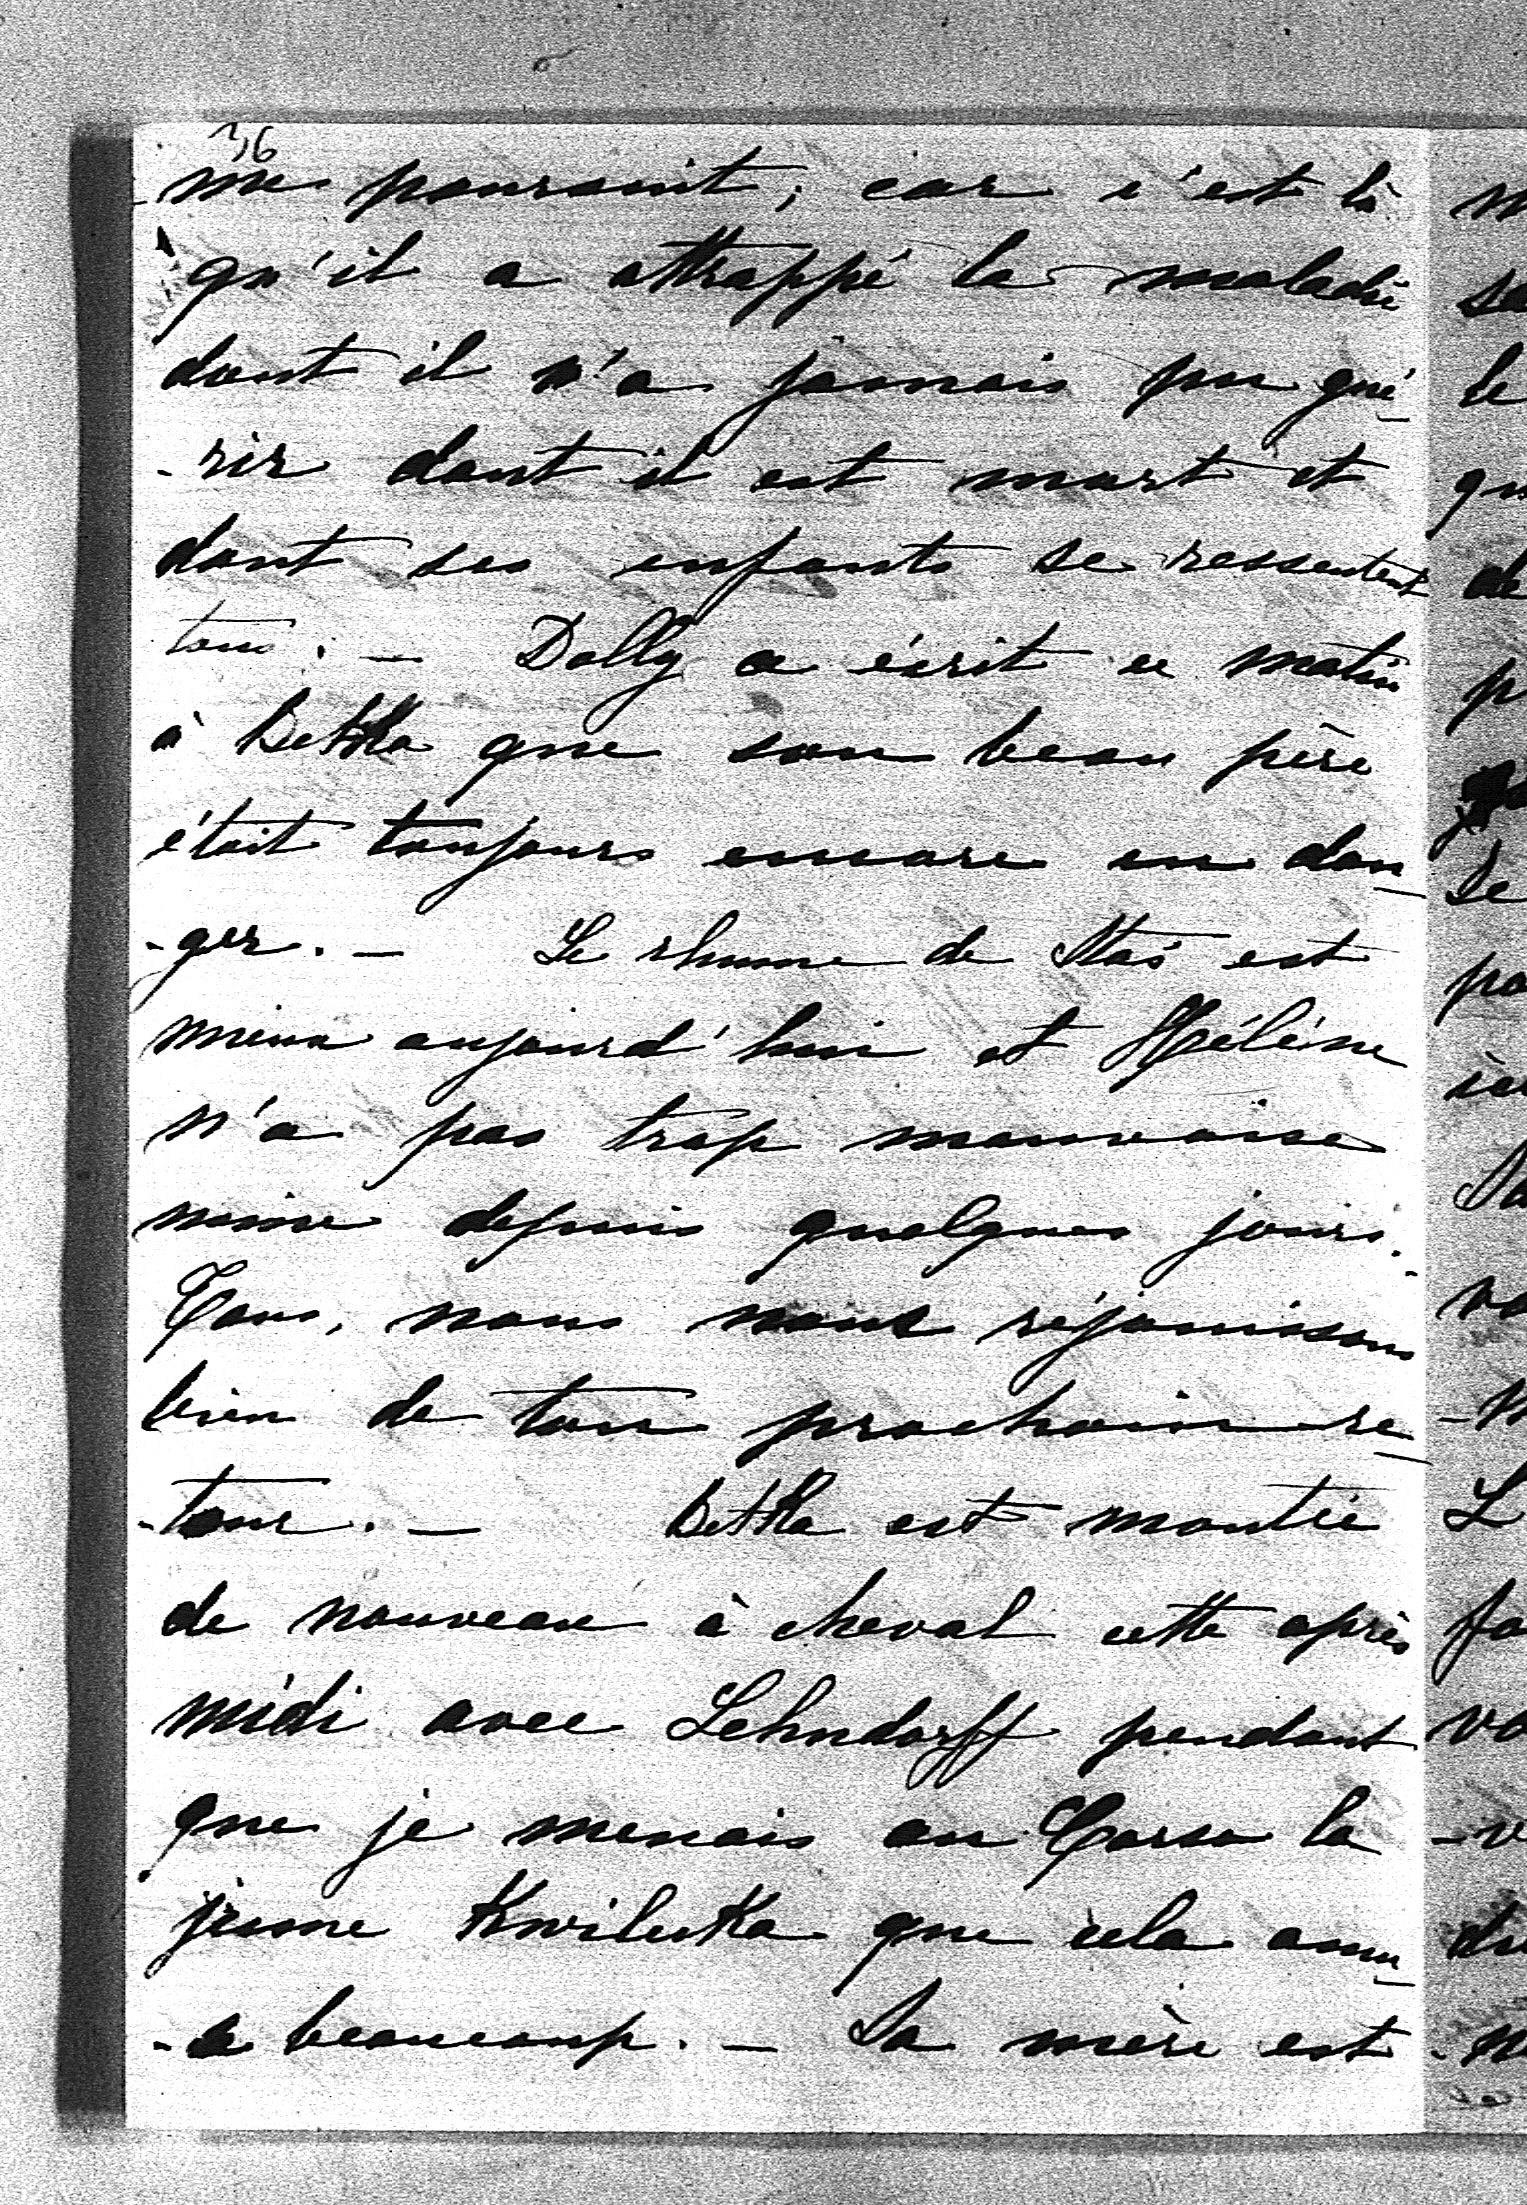 36
-me poursuit; car c'est là
qu'il a attrappé la maladie
dont il n'a jamais pu gué-
-rir dont il est mort et
dont ses enfants se ressentent
tous. — Dolly a écrit ce matin
à Betka que son beau père
était toujours encore en dan-
-ger. — Le rhume de Staś est
mieux aujourd'hui et Hélène
n'a pas trop mauvaise
mine depuis quelques jours.
Tous, nous nous réjouissons
bien de ton prochain re-
-tour. — Betka est montée
de nouveau à cheval cette après
midi avec Lehndorff pendant
que je menais au Corso la
jeune Kwilecka que cela amu-
-se beaucoup. — Sa mère est